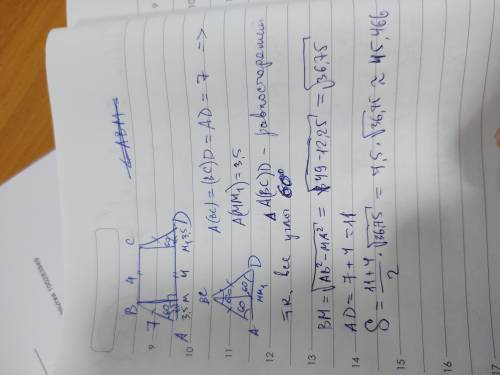 ∠ABM
B 4 C
7 60 60
A 3,5 M 4 M₁ 3,5 D
BC
60 60 60
A MM₁ D
A(BC) = (BC)D = AD = 7 =>
A(MM₁) = 3,5
Δ A(BC)D – равносторонний
т.к. все углы 60°
BM = √AB² − MA² = √49 − 12,25 = √36,75
AD = 7 + 4 = 11
S = 11+4 / 2 · √36,75 = 7,5 · √36,75 ≈ 45,466
9
10
11
12
13
14
15
16
17